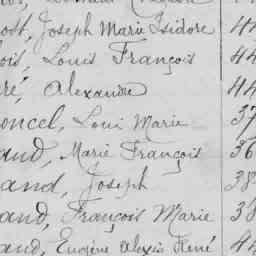 ost, Joseph Marie Isidore 44
ois, Louis François 44
ré, Alexandre 44
oncel, Loui Marie 37
aud, Marie François 36
and, Joseph 38
and, François Marie 38
and, Eugène Alexis René 44